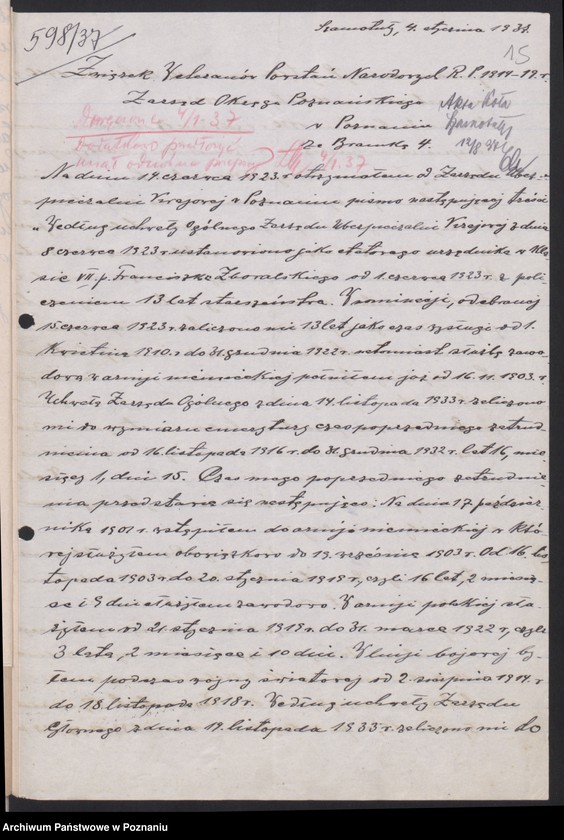 598/37
Szamotuły, 4. stycznia 1937.
15
Związek Weteranów Powstań Narodowych R.P. 1914-19 r.
Zarząd Okręgu Poznańskiego
w Poznaniu
Za Bramką 4.
Akta Koła
Szamotuły
12/8 37
4/1.37
4/1.37
Na dniu 19. czerwca 1923 r. otrzymałem od Zarządu Ubez-
pieczalni Krajowej w Poznaniu pismo następującej treści
„Według uchwały Ogólnego Zarządu Ubezpieczalni Krajowej z dnia
8 czerwca 1923 r. ustanowiono jako etatowego urzędnika w kla-
sie VII. p. Franciszka Zboralskiego od 1. czerwca 1923 r. z poli-
czeniem 13 lat starszeństwa. W nominacji, odebranej
15. czerwca 1923 r. zaliczono mi 13 lat jako czas wysługi od 1.
kwietnia 1910. r. do 31. grudnia 1922 r. natomiast służbę zawo-
dową w armji niemieckiej pełniłem już od 16. 11. 1903. r.
Uchwałą Zarządu Ogólnego z dnia 14. listopada 1933 r. zaliczono
mi do wymiaru emerytury czas poprzedniego zatrud-
nienia od 16. listopada 1916 r. do 31. grudnia 1932 r. lat 16, mie-
sięcy 1, dni 15. Czas mego poprzedniego zatrudnie-
nia przedstawia się następująco: Na dniu 17 paździer-
nika 1901 r. wstąpiłem do armji niemieckiej w któ-
rej służyłem obowiązkowo do 19. września 1903 r. Od 16. lis-
topada 1903 r. do 20. stycznia 1919 r., czyli 16 lat, 2 miesią-
ce i 9 dni służyłem zawodowo. W armji polskiej słu-
żyłem od 21. stycznia 1919 r. do 31. marca 1922 r., czyli
3 lata, 2 miesiące i 10 dni. W linji bojowej by-
łem podczas wojny światowej od 2. sierpnia 1914. r.
do 18. listopada 1918 r. Według uchwały Zarządu
Głównego z dnia 19. listopada 1933 r. zaliczono mi do
Archiwum Państwowe w Poznaniu